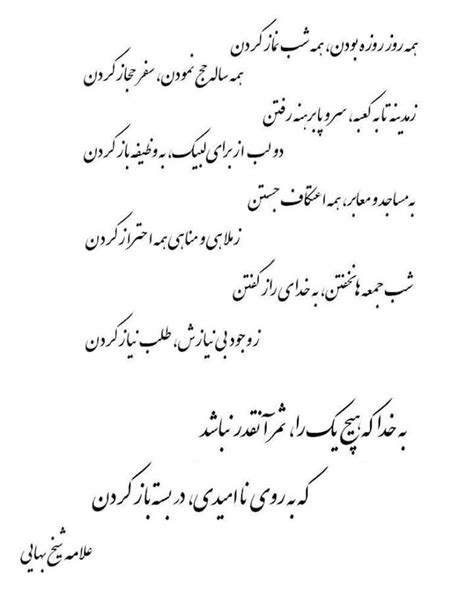 همه روز روزه بودن، همه شب نماز کردن
همه ساله حج نمودن، سفر حجاز کردن
ز مدینه تا به کعبه، سر و پا برهنه رفتن
دو لب از برای لبیک، به وظیفه باز کردن
به مساجد و معابر، همه اعتکاف جستن
ز ملاهی و مناهی همه احتراز کردن
شب جمعه ها نخفتن، به خدای راز گفتن
ز وجود بی نیازش، طلب نیاز کردن
به خدا که هیچ یک را، ثمر آنقدر نباشد
که به روی ناامیدی، در بسته باز کردن
علامه شیخ بهایی